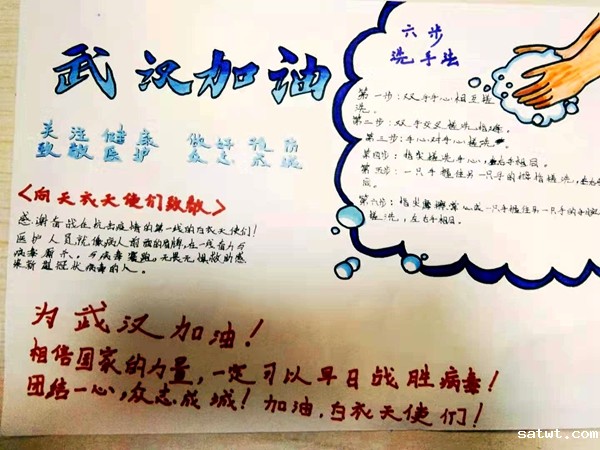 武汉加油
关注健康 做好预防
致敬医护 众志成城
<向天衣天使们致敬>
感谢奋战在抗击疫情的第一线的白衣天使们!
医护人员就像病人前面的盾牌,在一线奋力与
病毒厮杀,与病毒赛跑,无畏无惧救助感
染新冠状病毒的人。
为武汉加油!
相信国家的力量,一定可以早日战胜病毒!
团结一心,众志成城!加油,白衣天使们!
六步
洗手法
第一步:双手手心相互搓
洗。
第二步:双手交叉搓洗指缝。
第三步:手心对手心搓洗。
第四步:指尖搓洗手心,左右手相同。
第五步:一只手握住另一只手的拇指搓洗,
第六步:指尖 一只手握住另一只手的手腕
搓洗,左右手相同。
satwt.com